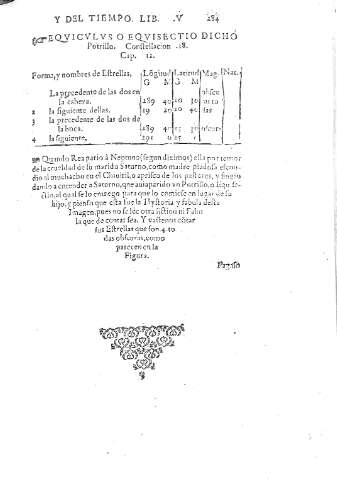 Y DEL TIEMPO. LIB. V 284
EQVICVLVS O EQVISECTIO DICHO
Potrillo. Constellacion 18.
Cap. 12.
Forma, y nombres de Estrellas. Lõgitud Latitud Mag. Nat.
G M G M
La precedente de las dos en obscu
la cabeza. 289 40 20 30
2 la siguiente dellas. 20 40 das
3 la precedente de las dos de
la boca. 289 40 25 obscur
4 la siguiente. 291 0 25
Quando Rea pario â Neptuno (segun diximos) ella por temor
de la crueldad de su marido Saturno, como madre piadosa escon
dio al muchacho en el o aprisco de los pastores, y fingio
dando a entender a Saturno, que auia parido vn Potrillo,
al qual se lo entrego para que lo comiese en lugar de su
hijo, y pienso que esta sue la Hystoria y fabula desta
Imagen, pues no se lee otra fiction ni Fabu
la que de contar sea. Y vastenos cõtar
sus Estrellas que son 4. to
das obscuras, como
parecen en la
Figura.
Pegaso